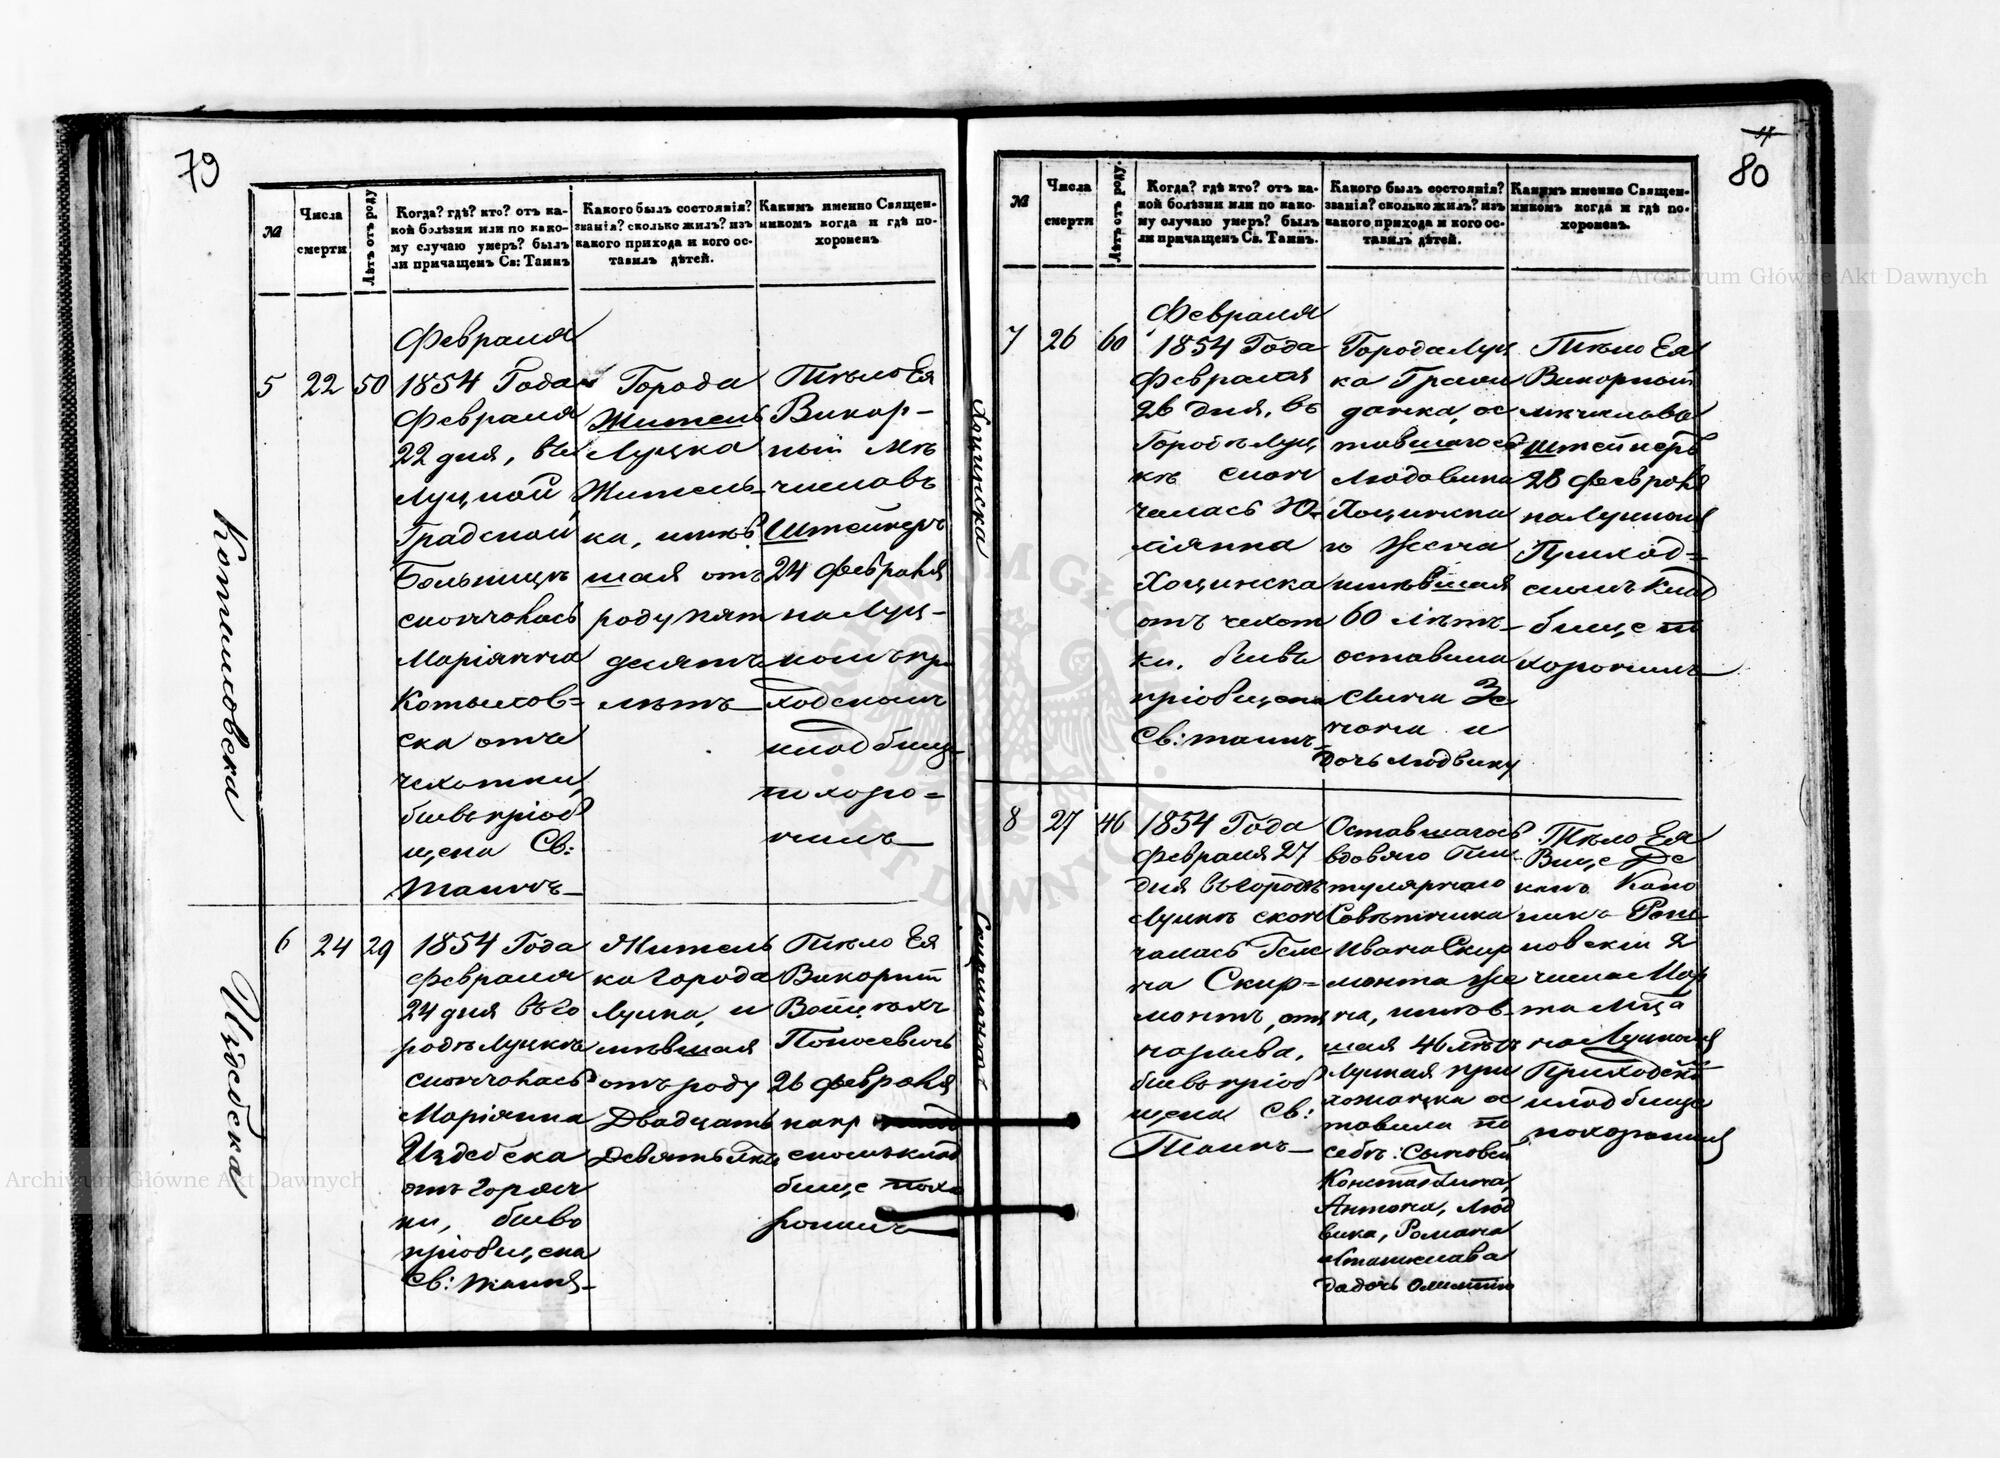 79
№
Числа
смерти
Лѣтъ отъ роду
Когда? гдѣ? кто? отъ ка-
кой болѣзни или по како-
му случаю умеръ? былъ
ли причащенъ Св: Таинъ
Какого былъ состоянія?
званія? сколько жилъ? изъ
какого прихода и кого ос-
тавилъ дѣтей.
Какимъ именно Священ-
никомъ когда и гдѣ по-
хороненъ
Котыловска
Февраля
5 22 50
1854 Года
Февраля
22 дня, въ
Луцкой
Градской
Больницѣ
скончалась
Маріянна
Котылов=
ска отъ
чахотки,
бывъ пріоб
щена Св:
Таинъ
Города
Житель
Луцка
Житель-
ка, имѣв
шая отъ
роду пят
десятъ
лѣтъ
Тѣло Ея
Викар-
ный Мѣ
числавъ
Штейнеръ
24 Февраля
на Луц-
комъ при
ходскомъ
кладбищѣ
похоро=
нилъ
Издебска
6 24 29
1854 Года
Февраля
24 дня въ го
родѣ Луцкѣ
скончалась
Маріянна
Издебска
отъ горяч
ки, бывъ
пріобщена
Св: Таинъ
Житель
ка города
Луцка, и
мѣвшая
отъ роду
Двадцать
Девять лѣтъ
Тѣло Ея
Викарный
Войцѣхъ
26 Февраля
скомъ клад
бище похо
ронилъ
80
№
Числа
смерти
Лѣтъ отъ роду.
Когда? гдѣ кто? отъ ка-
кой болѣзни или по како-
му случаю умеръ? былъ
ли причащенъ Св. Таинъ.
Какого былъ состоянія?
званія? сколько жилъ? изъ
какого прихода и кого ос-
тавилъ дѣтей.
Какимъ именно Священ-
никомъ когда и гдѣ по-
хороненъ.
Хоцинска
Февраля
7 26 60
1854 Года
Февраля
26 дня, въ
Городѣ Луц
кѣ скон
чалась Ю-
ліянна
Хоцинска
отъ чахот
ки. бывъ
пріобщена
Св: таинъ
Города Луц
ка Граж
данка, ос
тавшагося
Людовика
Хоцинска
го Жена
имѣвшая
60 лѣтъ
оставила
сына Зе
нона и
дочь Людвику
Тѣло Ея
Викарный
Мѣчиславъ
Штейнеръ
28 Февраля
на Луцкомъ
Приход=
скомъ Клад
бище по
хоронилъ
Скирмонтъ
8 27 46
1854 Года
Февраля 27
дня въ городѣ
Луцкѣ скон
чалась Геле
на Скир=
монтъ, отъ
нарыва,
бывъ пріоб
щена Св:
Таинъ
Оставшагося
вдовяго Ти
тулярнаго
Совѣтника
Ивана Скир
монта Же
на, имѣв
шая 46 лѣтъ
Луцкая при
хожанка о
тавила по
себѣ: Сыновей
Константина,
Антона, Люд
вика, Романа
Станислава
да дочь Олимпію
Тѣло Ея
Вице Де
канъ Кано
никъ
числа Мар
та М-ца
на Луцкомъ
Приходско
кладбище
Archiwum Główne Akt Dawnych
Archiwum Główne Akt Dawnych